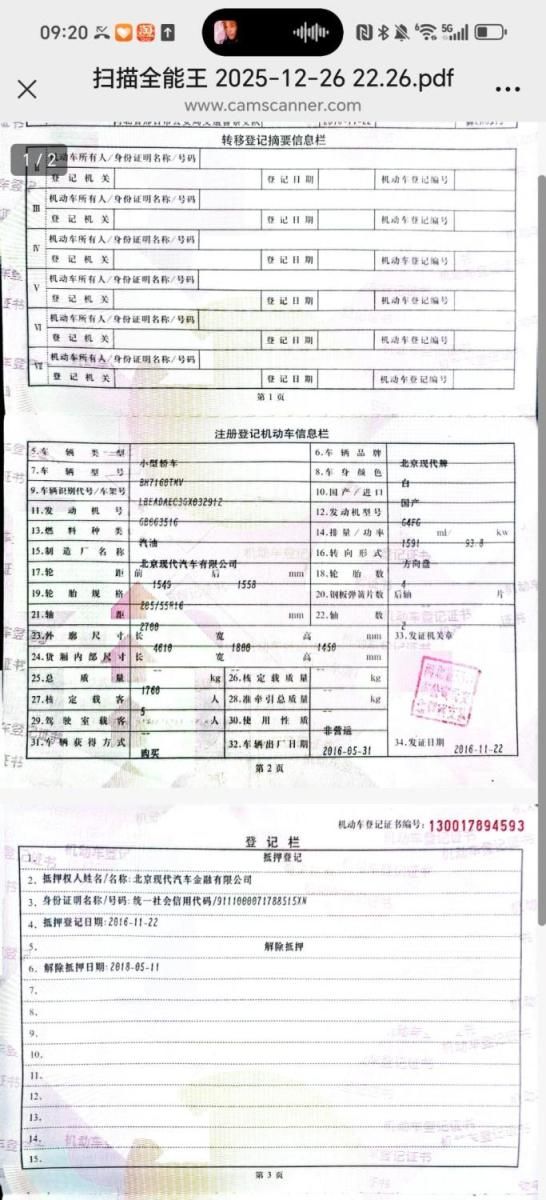 09:20
5G
扫描全能王 2025-12-26 22.26.pdf
www.camscanner.com
1 / 2
转移登记摘要信息栏
机动车所有人/身份证明名称/号码
登记机关 登记日期 机动车登记编号
III 机动车所有人/身份证明名称/号码
登记机关 登记日期 机动车登记编号
IV 机动车所有人/身份证明名称/号码
登记机关 登记日期 机动车登记编号
V 机动车所有人/身份证明名称/号码
登记机关 登记日期 机动车登记编号
VI 机动车所有人/身份证明名称/号码
登记机关 登记日期 机动车登记编号
VII 机动车所有人/身份证明名称/号码
登记机关 登记日期 机动车登记编号
第 1 页
注册登记机动车信息栏
5.车辆类型 小型轿车 6.车辆品牌 北京现代牌
7.车辆型号 BH7160TMV 8.车身颜色 白
9.车辆识别代号/车架号 10.国产/进口 国产
11.发动机号 12.发动机型号 G4FG
13.燃料种类 汽油 14.排量/功率 1591 ml/ 93.8 kw
15.制造厂名称 北京现代汽车有限公司 16.转向形式 方向盘
17.轮距 前 1549 后 1558 mm 18.轮胎数 4
19.轮胎规格 205/55R16 20.钢板弹簧片数 后轴 片
21.轴距 2700 mm 22.轴数 2
23.外廓尺寸 长 4610 宽 1800 高 1450 mm 33.发证机关章
24.货厢内部尺寸 长 宽 高 mm
25.总质量 1760 kg 26.核定载质量 kg
27.核定载客 5 人 28.准牵引总质量 kg
29.驾驶室载客 人 30.使用性质 非营运
31.车辆获得方式 购买 32.车辆出厂日期 2016-05-31 34.发证日期 2016-11-22
第 2 页
机动车登记证书编号：130017894593
登记栏
1. 抵押登记
2. 抵押权人姓名/名称:北京现代汽车金融有限公司
3. 身份证明名称/号码:统一社会信用代码/9111000071788515XN
4. 抵押登记日期:2016-11-22
5. 解除抵押
6. 解除抵押日期:2018-05-11
7.
8.
9.
10.
11.
12.
13.
14.
15.
第 3 页